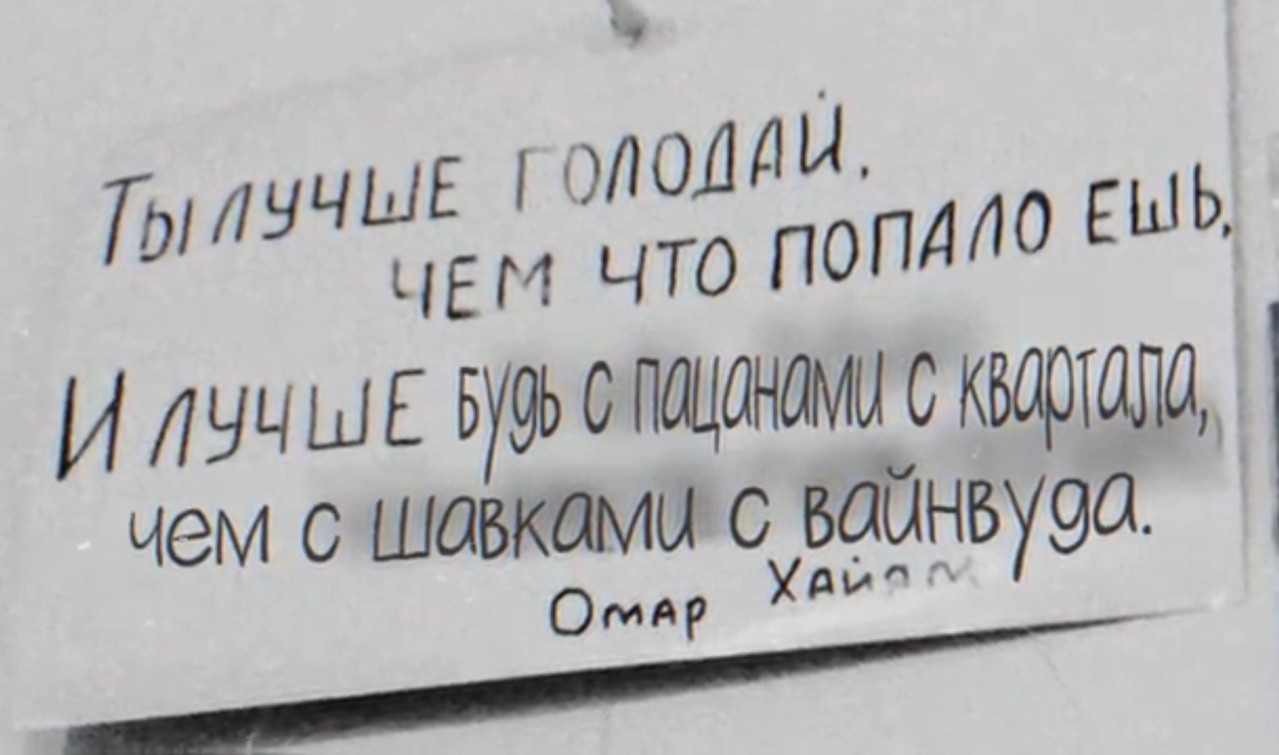 Ты лучше голодай,
чем что попало ешь,
И лучше будь с пацанами с квартала,
чем с шавками с вайнвуда.
Омар Хайям